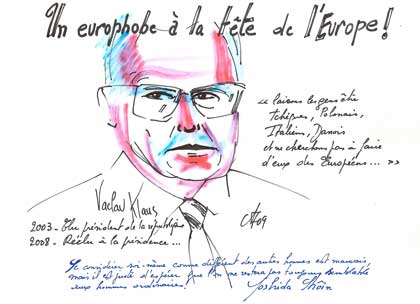 Un europhobe à la tête de l'Europe!
« laissons les gens être
Tchèques, Polonais,
Italiens, Danois
et ne cherchons pas à faire
d'eux des Européens... »
Vaclav Klaus
2003 - Élu président de la république
2008 - Réélu à la présidence...
09
Se considérer soi-même comme différent des autres hommes est mauvais,
mais il est juste d'espérer que l'on ne restera pas toujours semblable
aux hommes ordinaires! Yoshida Shôin